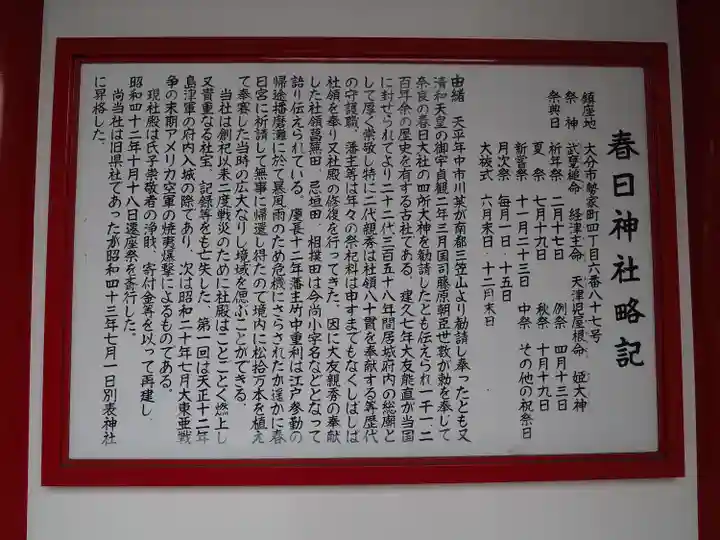 春日神社略記
鎮座地 大分市勢家町四丁目六番八十七号
祭神 武甕槌命 経津主命 天津児屋根命 姫大神
祭典日 祈年祭 二月十七日 例祭 四月十三日
夏祭 七月十九日 秋祭 十月十九日
新嘗祭 十一月二十三日 中祭 その他の祝祭日
月次祭 毎月一日・十五日
大祓式 六月末日・十二月末日
由緒 天平年中市川某が南都三笠山より勧請し奉ったとも又
清和天皇の御宇貞観二年三月国司藤原朝臣世敦が勅を奉じて
奈良の春日大社の四所大神を勧請したとも伝えられ一千一二
百年余の歴史を有する古社である。建久七年大友能直が当国
に封ぜられてより二十二代三百五十八年間居城府内の総廟と
して厚く崇敬し特に二代親秀は社領八十貫を奉献する等歴代
の守護職、藩主等は年々の祭祀料は申すまでもなくしばしば
社領を奉り又社殿の修復を行ってきた。因に大友親秀の奉献
した社領菖蒲田、忌垣田、相撲田は今尚小字名などとなって
語り伝えられている。慶長十二年藩主竹中重利は江戸参勤の
帰途播磨灘に於て暴風雨のため危機にさらされたが遥かに春
日宮に祈請して無事に帰還し得たので境内に松拾万本を植え
て奉賽した当時の広大なりし境域を偲ぶことができる。
当社は創祀以来二度戦災のために社殿はことごとく燃上し
又貴重なる社宝、記録等をも亡失した。第一回は天正十二年
島津軍の府内入城の際であり、次は昭和二十年七月大東亜戦
争の末期アメリカ空軍の焼夷爆撃によるものである。
現社殿は氏子崇敬者の浄財、寄付金等を以って再建し
昭和四十二年十月十八日遷座祭を斎行した。
尚当社は旧県社であったが昭和四十三年七月一日別表神社
に昇格した。